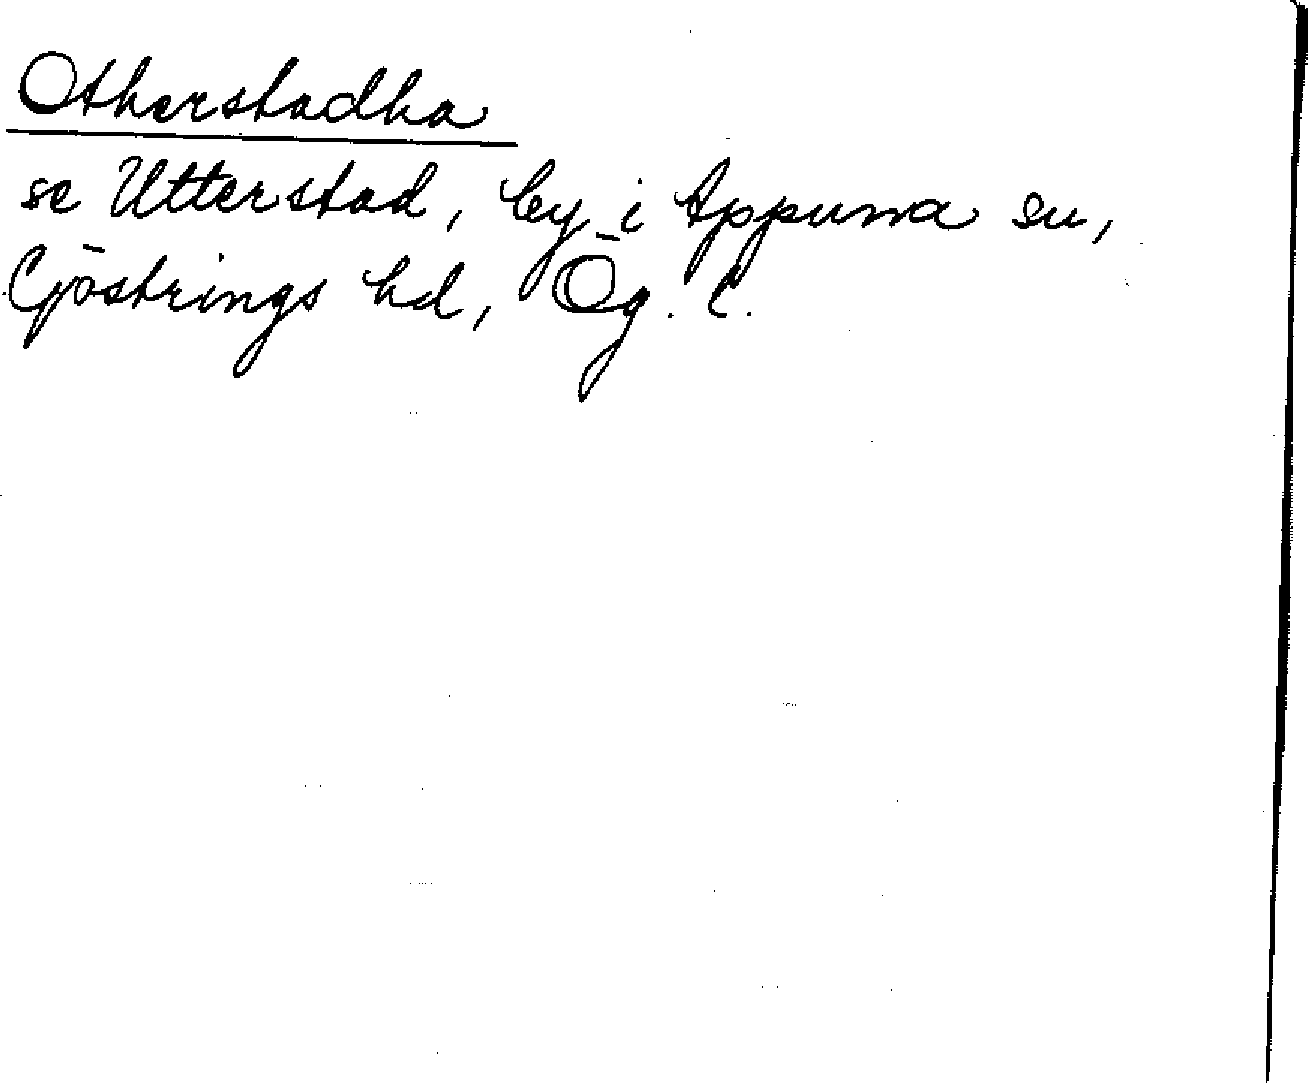 Otherstadha
se Utterstad, by i Appuna sn,
Göstrings hd, Ög. l.